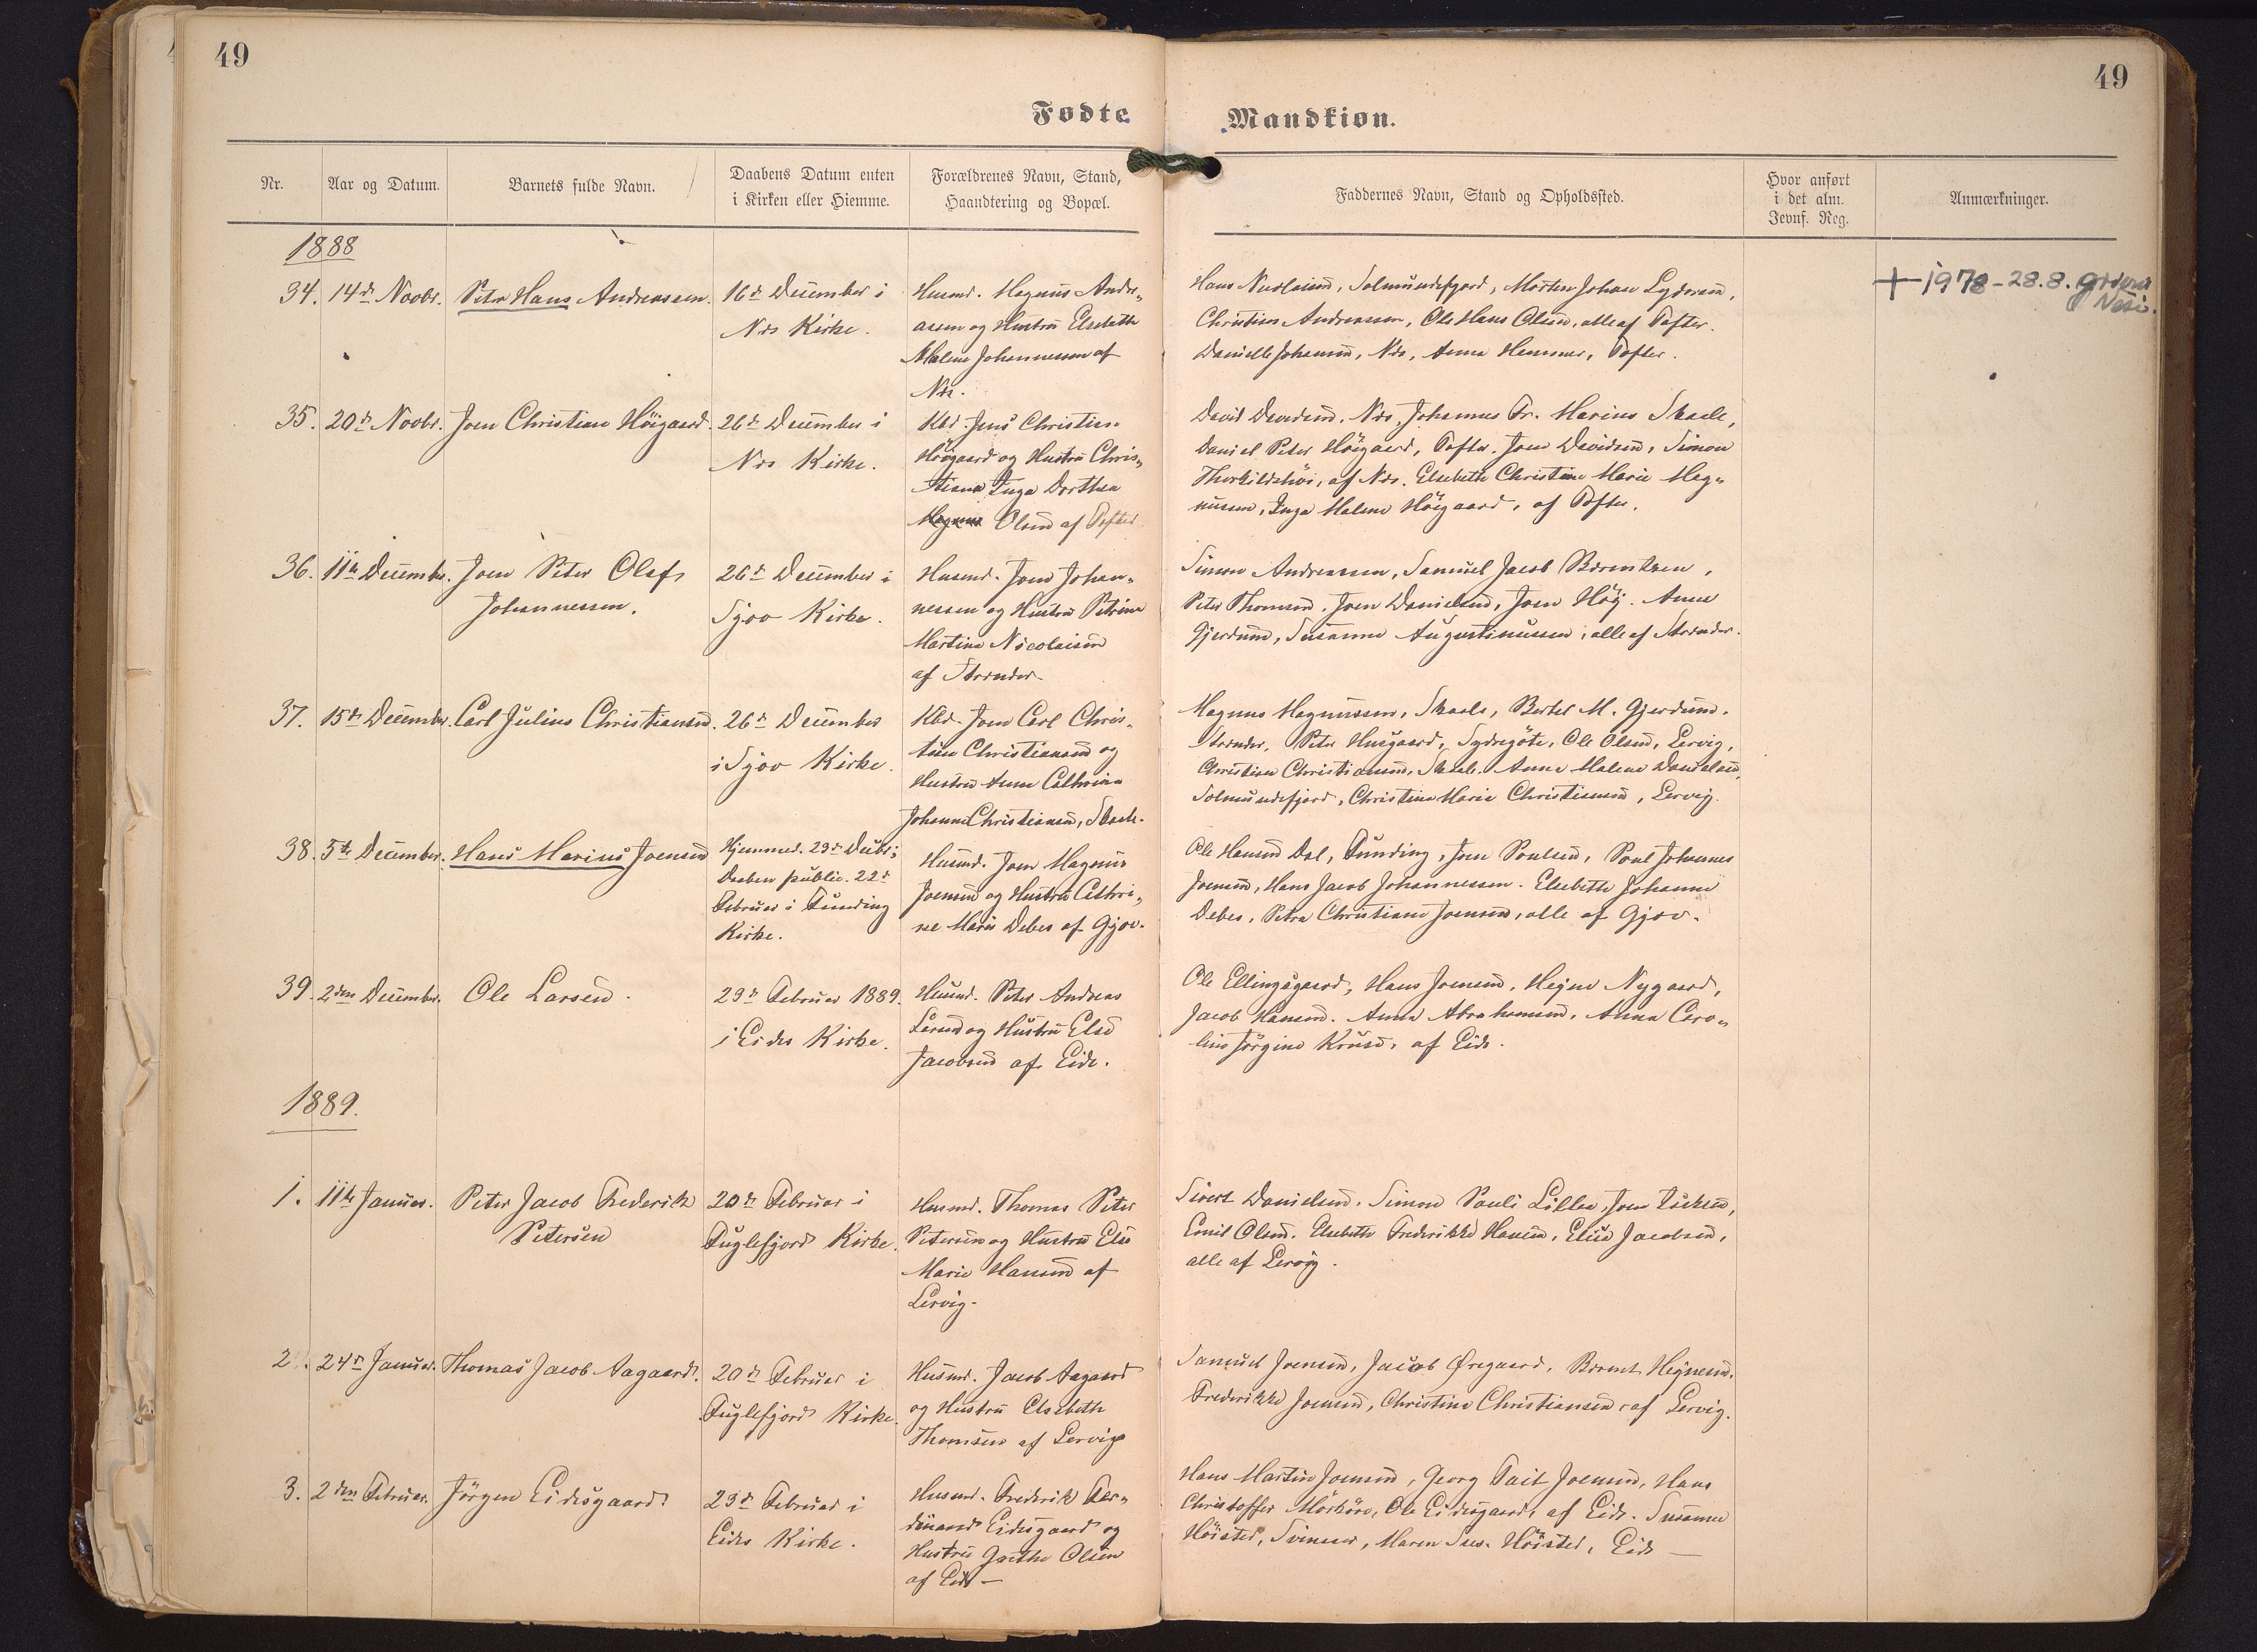 49
49
Fødte
Mandkiøn.
Nr.
Aar og Datum.
Barnets fulde Navn.
Daabens Datum enten
i Kirken eller Hiemme.
Forældrenes Navn, Stand,
Haandtering og Bopæl.
Faddernes Navn, Stand og Opholdssted.
Hvor anført
i det alm.
Jevnf. Reg.
Anmærkninger.
1888
34. 14de Novbr. Peter Hans Andreassen.
16de December i
Næs Kirke.
Husmd. Magnus Andre-
asen og Hustru Elsebeth
Malene Johannessen af
Næs.
Hans Nicolaisen, Solmundefjord, Morten Johan Lydersen,
Christian Andreassen, Ole Hans Olsen, alle af Tofter.
Danielle Johansen, Næs, Anna Hammer, Tofter.
+ 1978-28.8.
35. 20de Novbr. Joen Christian Höigaard.
26de December i
Næs Kirke.
Kbd. Jens Christian
Höigaard og Hustru Chris-
tiana Inga Dorthea
Olsen af Tofter
David Davidsen, Næs, Johannes Fr. Marius Skaale,
Daniel Peter Höigaard, Tofter. Joen Davidsen, Simon
Thorkildshöi, af Næs. Elsebeth Christine Marie Mag-
nussen, Inga Malene Höigaard, af Tofter.
36. 11te December. Joen Peter Olaf
Johannessen.
26de December i
Sjov Kirke.
Husmd. Joen Johan-
nessen og Hustru Petrine
Martine Nicolaisen
af Strænder.
Simon Andreassen, Samuel Jacob Berentsen,
Peter Thomsen, Joen Danielsen, Joen Höj. Anna
Gjerdum, Susanne Augustinussen, alle af Strænder.
37. 15de December. Carl Julius Christiansen.
26de December
i Sjov Kirke.
Kbd. Joen Carl Chris-
tian Christiansen og
Hustru Anne Cathrine
Johanne Christiansen, Skaale.
Magnus Magnussen, Skaale, Bertel M. Gjerdum,
Strænder, Peter Husgaard, Sydregöte, Ole Olsen, Lervig,
Christian Christiansen, Skaale. Anne Malene Danielsen,
Solmundefjord, Christine Marie Christiansen, Lervig.
38. 5te December. Hans Marius Joensen
Hjemmed. 23de Decbr.;
Daaben public. 22de
Februar i Funding
Kirke.
Husmd. Joen Magnus
Joensen og Hustru Cathri-
ne Marie Debes af Gjov.
Ole Hansen Dal, Funding, Joen Poulsen, Poul Johannes
Joensen, Hans Jacob Johannessen. Elsebeth Johanne
Debes, Petra Christiane Joensen, alle af Gjov.
39. 2den December. Ole Larsen.
23de Februar 1889.
i Eides Kirke.
Husmd. Peter Andreas
Larsen og Hustru Else
Jacobsen af Eide.
Ole Ellingsgaard, Hans Joensen, Hejne Nygaard,
Jacob Hansen. Anna Abrahamsen, Anna Caro-
line Jörgine Kruse, af Eide.
1889.
1. 11te Januar. Peter Jacob Frederik
Petersen
20de Februar i
Fuglefjord Kirke.
Husmd. Thomas Peter
Petersen og Hustru Else
Marie Hansen af
Lervig.
Sivert Danielsen, Simon Pauli Lillea, Joen
Emil Olsen. Elsebeth Frederikke Hansen, Elise Jacobsen,
alle af Lervig.
2. 24de Januar. Thomas Jacob Aagaard.
20de Februar i
Fuglefjord Kirke.
Husmd. Jacob Aagaard
og Hustru Elsebeth
Thomsen af Lervig
Samuel Joensen, Jacob Øregaard, Berent Hejnesen.
Frederikke Joensen, Christine Christiansen, af Lervig.
3. 2den Februar. Jörgen Eidesgaard.
23de Februar i
Eides Kirke.
Husmd. Frederik Fer-
dinand Eidesgaard og
Hustru Grethe Olsen
af Eide —
Hans Martin Joensen, Georg Tait Joensen, Hans
Christoffer Mörköre, Ole Eidesgaard, af Eide. Susanne
Höisted, Svinaer, Maren Sus. Höisted, Eide —